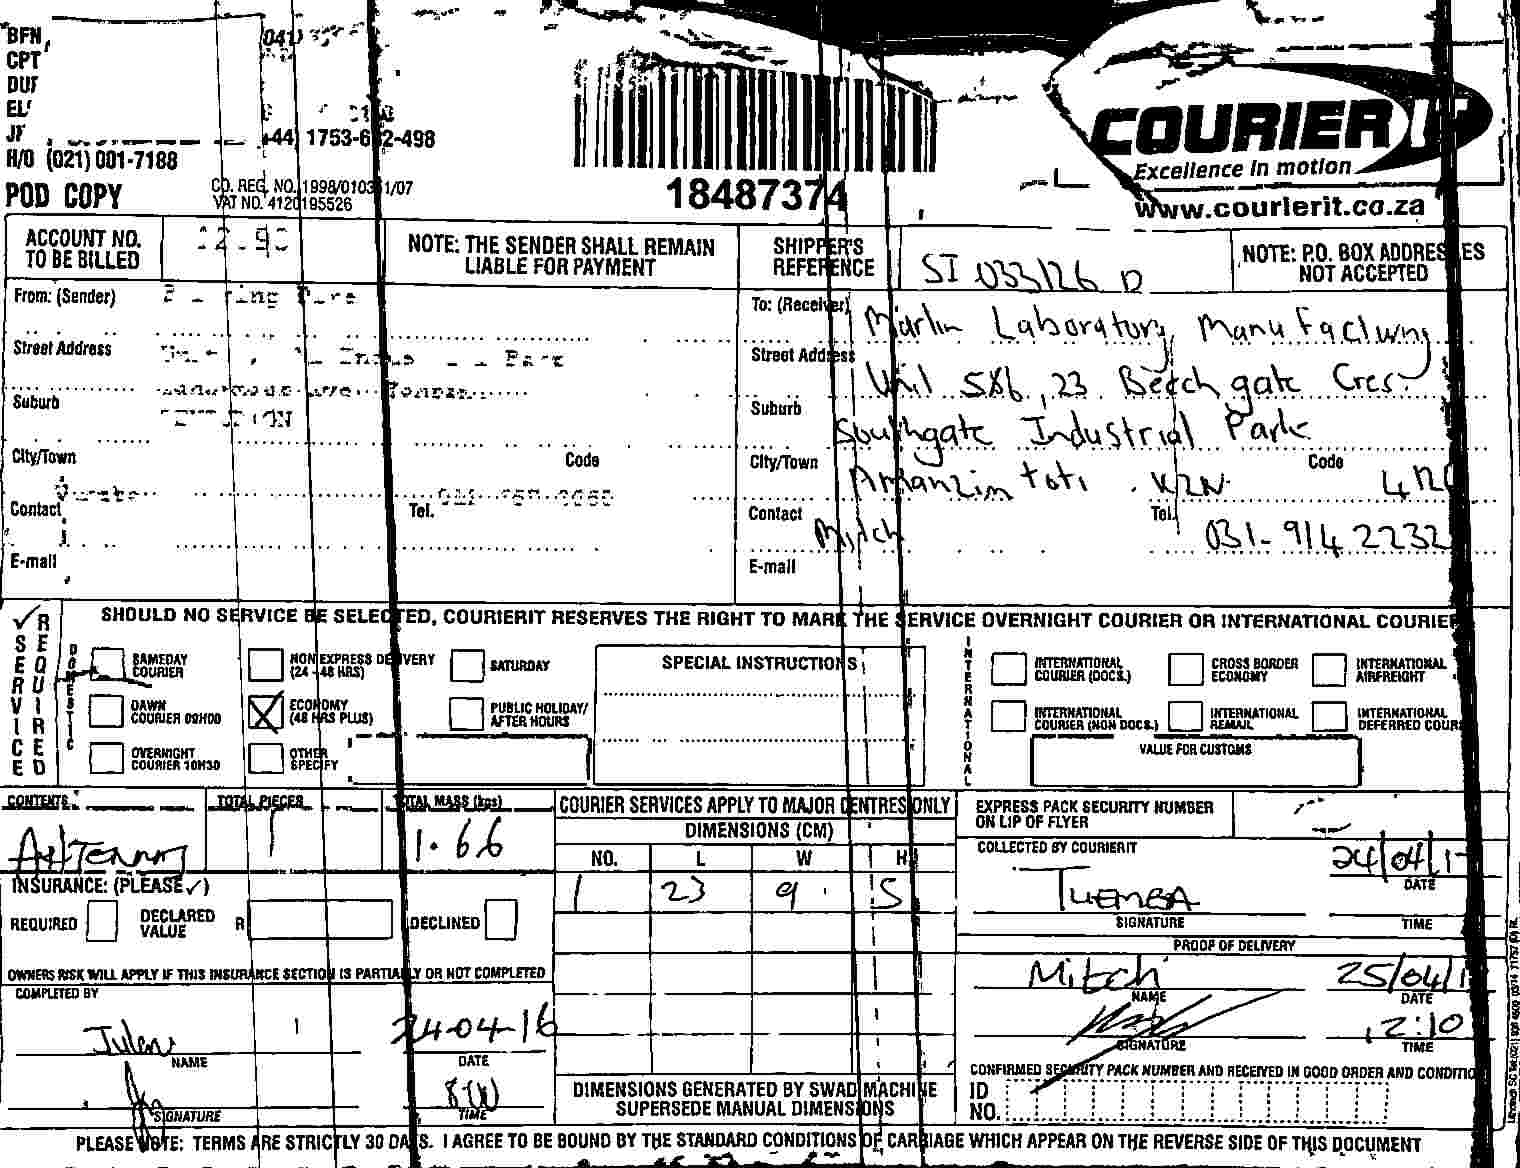 BFN
CPT
H/O (021) 001-7188
POD COPY
CO. REG. NO. 1998/010311/07
VAT NO. 4120195526
18487374
COURIER IT
Excellence in motion
www.courierit.co.za
ACCOUNT NO.
TO BE BILLED
NOTE: THE SENDER SHALL REMAIN
LIABLE FOR PAYMENT
SHIPPER'S
REFERENCE
SI 033126 D
NOTE: P.O. BOX ADDRESSES
NOT ACCEPTED
From: (Sender)
Street Address
Suburb
City/Town
Code
Contact
Tel.
E-mail
To: (Receiver)
Marlin Laboratory Manufacturing
Street Address
Unit 5&6, 23 Beechgate Cres.
Suburb
Southgate Industrial Park
City/Town
Code
Amanzimtoti . KZN
Contact
Mitch
Tel.
031-914 2232
E-mail
SERVICE REQUIRED
SHOULD NO SERVICE BE SELECTED, COURIERIT RESERVES THE RIGHT TO MARK THE SERVICE OVERNIGHT COURIER OR INTERNATIONAL COURIER
DOMESTIC
SAMEDAY
COURIER
NON EXPRESS DELIVERY
(24 -48 HRS)
SATURDAY
DAWN
COURIER 09H00
ECONOMY
(48 HRS PLUS)
PUBLIC HOLIDAY/
AFTER HOURS
OVERNIGHT
COURIER 10H30
OTHER
SPECIFY
SPECIAL INSTRUCTIONS
INTERNATIONAL
INTERNATIONAL
COURIER (DOCS.)
CROSS BORDER
ECONOMY
INTERNATIONAL
AIRFREIGHT
INTERNATIONAL
COURIER (NON DOCS.)
INTERNATIONAL
REMAIL
INTERNATIONAL
DEFERRED COUR
VALUE FOR CUSTOMS
CONTENTS
TOTAL PIECES
1
TOTAL MASS (kgs)
1.66
INSURANCE: (PLEASE ✓)
REQUIRED
DECLARED
VALUE
R
DECLINED
OWNERS RISK WILL APPLY IF THIS INSURANCE SECTION IS PARTIALLY OR NOT COMPLETED
COMPLETED BY
NAME
24-04-16
DATE
SIGNATURE
TIME
COURIER SERVICES APPLY TO MAJOR CENTRES ONLY
DIMENSIONS (CM)
NO. L W H
1 23 9 5
DIMENSIONS GENERATED BY SWAD MACHINE
SUPERSEDE MANUAL DIMENSIONS
EXPRESS PACK SECURITY NUMBER
ON LIP OF FLYER
COLLECTED BY COURIERIT
24/04/1
DATE
THEMBA
SIGNATURE
TIME
PROOF OF DELIVERY
Mitch
NAME
25/04/1
DATE
SIGNATURE
12:10
TIME
CONFIRMED SECURITY PACK NUMBER AND RECEIVED IN GOOD ORDER AND CONDITIO
ID
NO.
PLEASE NOTE: TERMS ARE STRICTLY 30 DAYS. I AGREE TO BE BOUND BY THE STANDARD CONDITIONS OF CARRIAGE WHICH APPEAR ON THE REVERSE SIDE OF THIS DOCUMENT